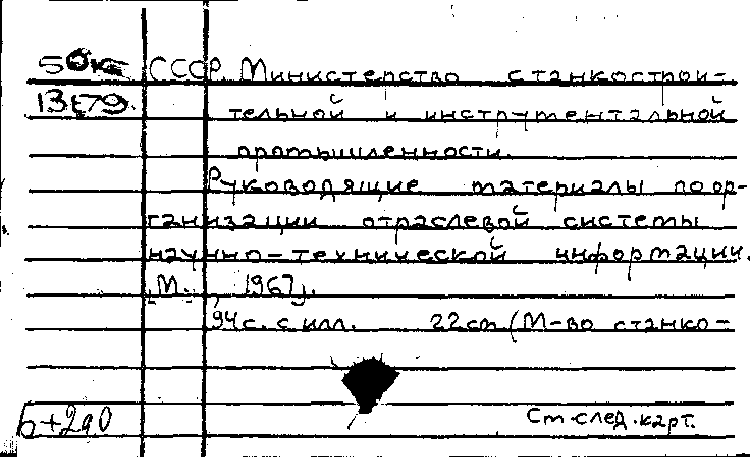 СССР. Министерство станкострои-
тельной и инструментальной
промышленности.
Руководящие материалы по ор-
ганизации отраслевой системы
научно-технической информации.
[М., 1967].
94 с. с илл. 22 см (М-во станко-
См. след. карт.